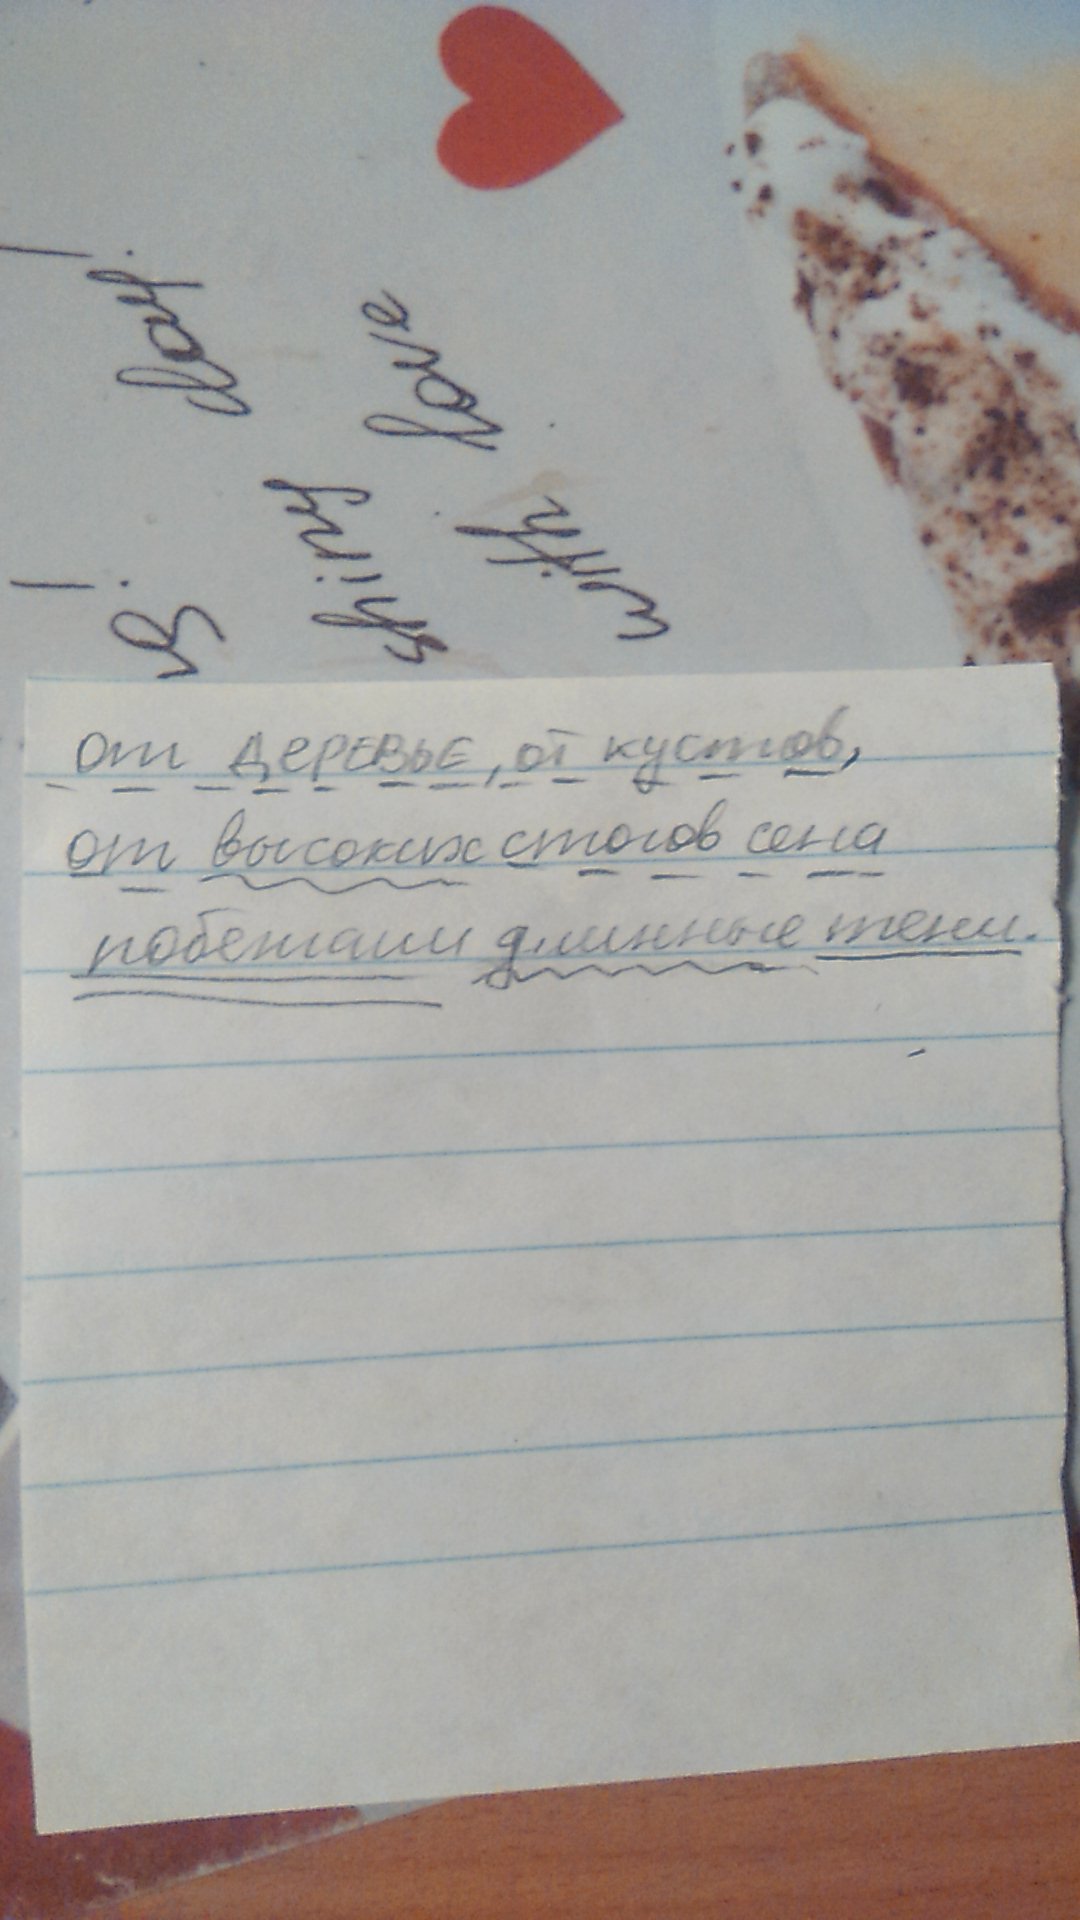 with love
shiny day!
от деревье, от кустов,
от высоких стогов сена
побежали длинные тени.